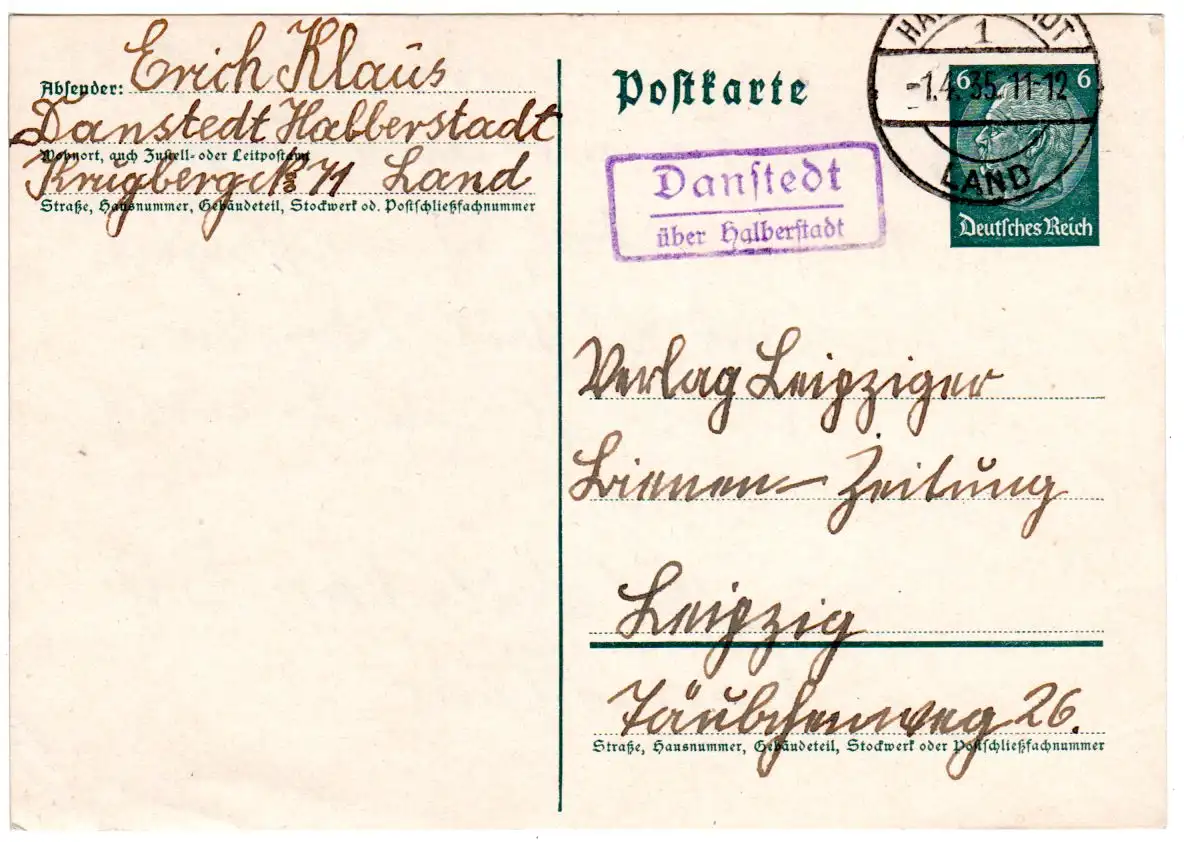 Absender: Erich Klaus
Danstedt Halberstadt
Wohnort, auch Zustell- oder Leitpostamt
Land
Straße, Hausnummer, Gebäudeteil, Stockwerk od. Postschließfachnummer
Postkarte
1
-1.4.35. 11-12
LAND
6 6
Deutsches Reich
Danstedt
über Halberstadt
Verlag Leipziger
Bienen-Zeitung
Leipzig
Täubchenweg 26.
Straße, Hausnummer, Gebäudeteil, Stockwerk oder Postschließfachnummer